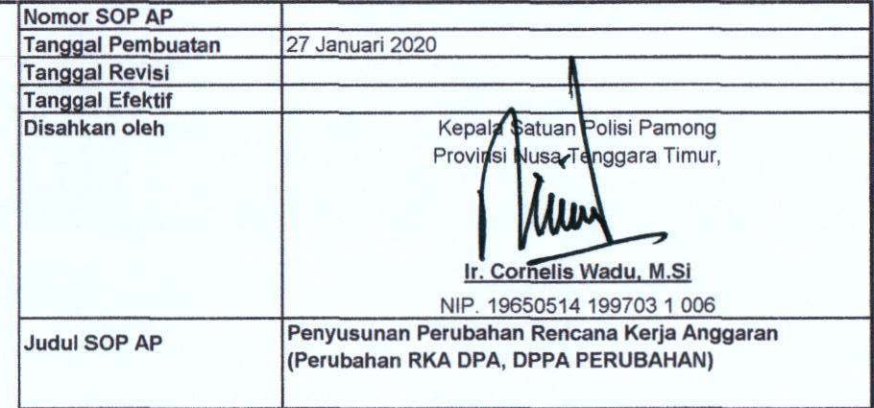 Nomor SOP AP
Tanggal Pembuatan 27 Januari 2020
Tanggal Revisi
Tanggal Efektif
Disahkan oleh Kepala Satuan Polisi Pamong
Provinsi Nusa Tenggara Timur,
Ir. Cornelis Wadu, M.Si
NIP. 19650514 199703 1 006
Judul SOP AP Penyusunan Perubahan Rencana Kerja Anggaran
(Perubahan RKA DPA, DPPA PERUBAHAN)